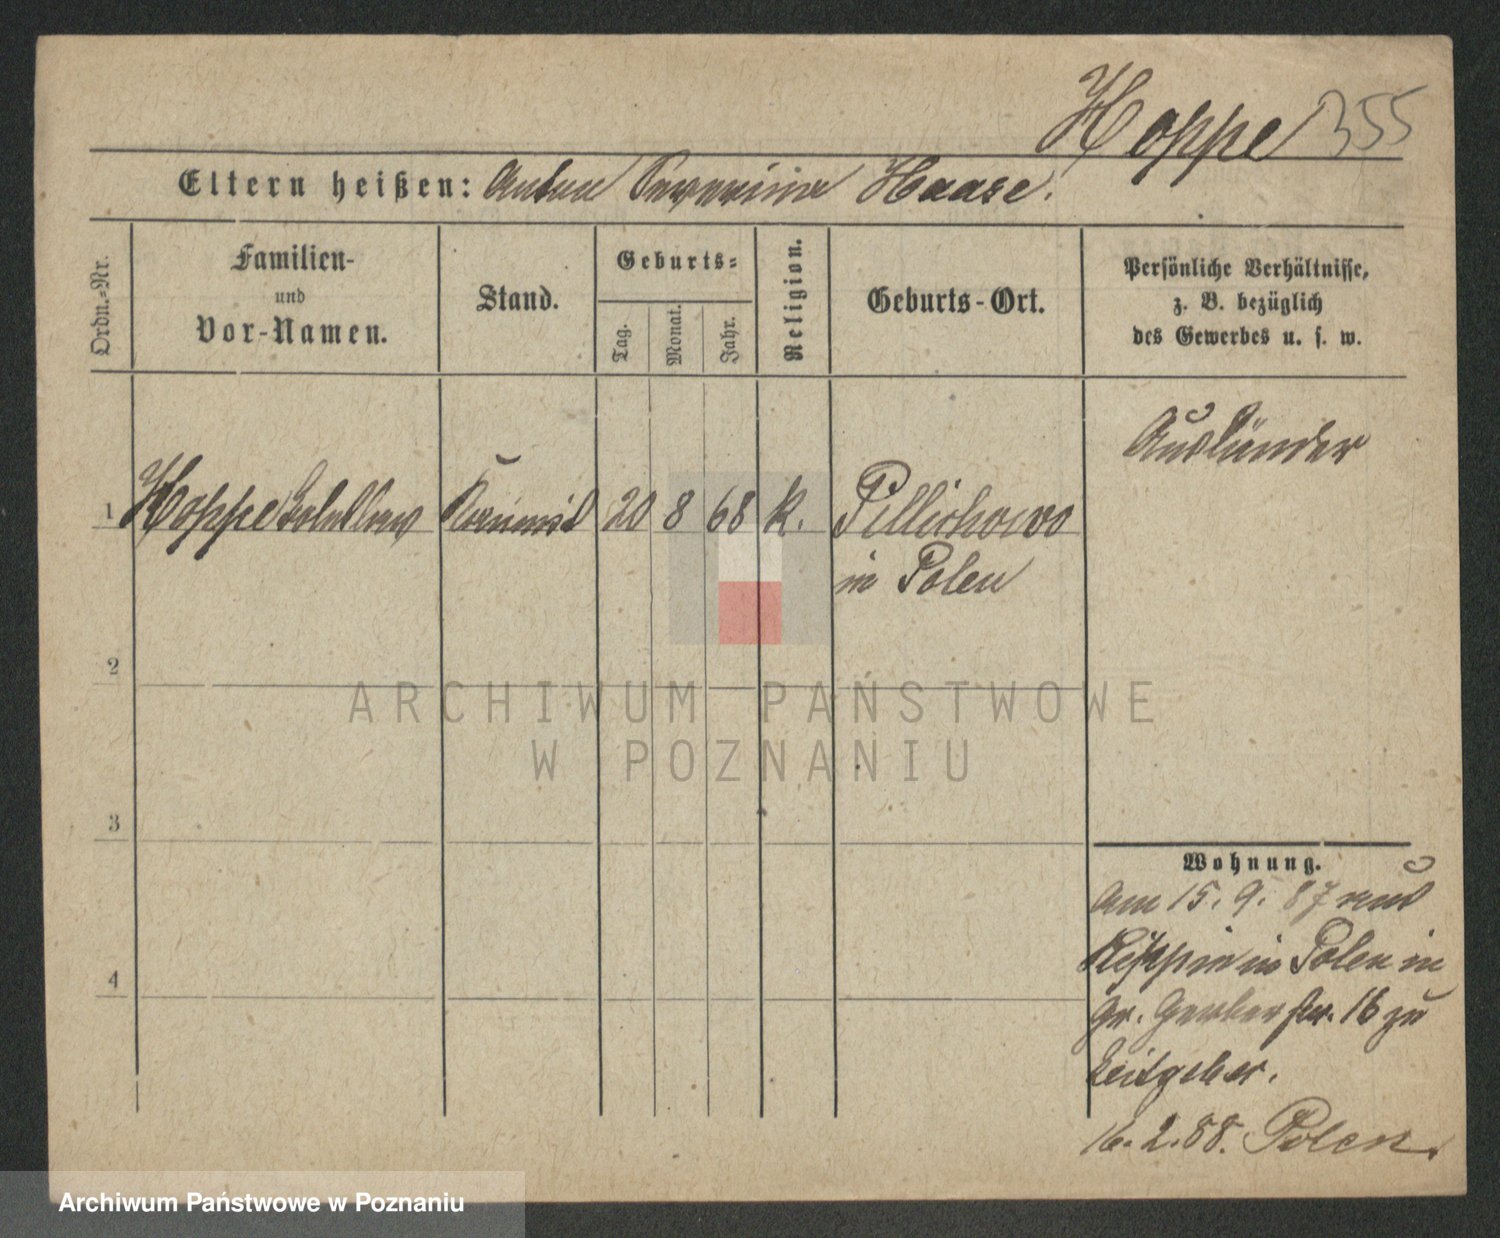 Hoppe 355
Eltern heißen: Anton Severina Haase.
Ordn.=Nr.
Familien-
und
Vor-Namen.
Stand.
Geburts=
Tag.
Monat.
Jahr.
Religion.
Geburts-Ort.
Persönliche Verhältnisse,
z. B. bezüglich
des Gewerbes u. s. w.
Ausländer
1 Hoppe 20 8 68 k. Pillichowo
in Polen
2
ARCHIWUM PAŃSTWOWE
W POZNANIU
3
4
Wohnung.
Am 15. 9. 87 aus
in Polen in
gr. Gerberstr. 16 zu
Leitgeber.
16. 2. 88. Polen.
Archiwum Państwowe w Poznaniu